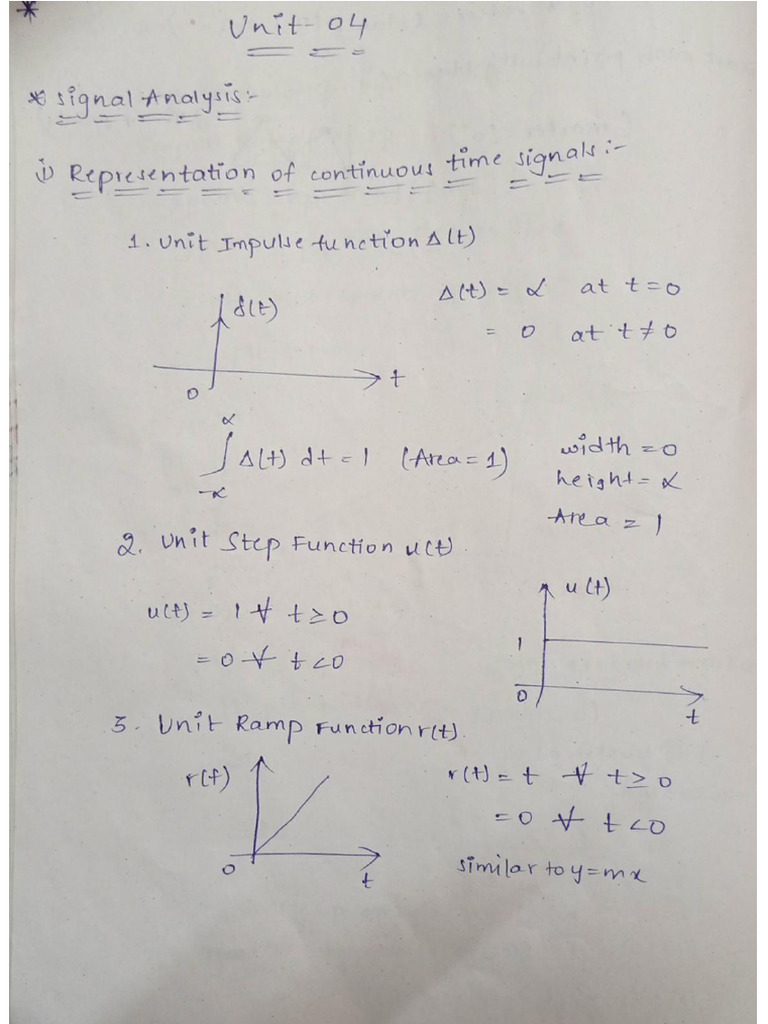 *
Unit-04
* Signal Analysis:-
i) Representation of continuous time signals:-
1. Unit Impulse function Δ(t)
δ(t)
Δ(t) = α at t=0
= 0 at t≠0
t
0
α
∫ Δ(t) dt = 1 (Area = 1)
-α
width = 0
height = α
Area = 1
2. Unit Step Function u(t)
u(t) = 1 ∀ t≥0
= 0 ∀ t<0
u(t)
1
0
t
3. Unit Ramp Function r(t).
r(t)
0
t
r(t) = t ∀ t≥0
= 0 ∀ t<0
similar to y=mx